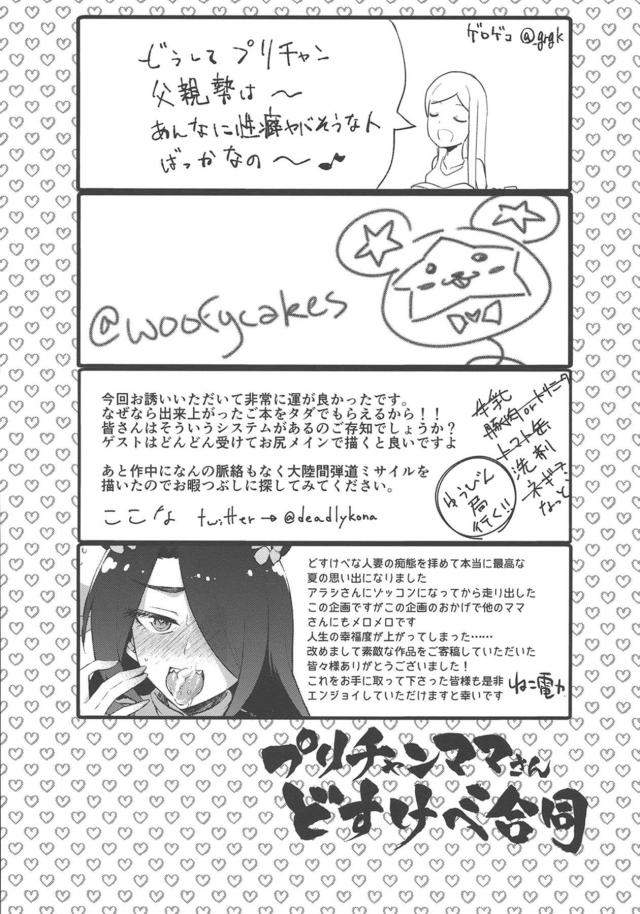 ゲロゲコ @_grgk
どうしてプリチャン
父親勢は〜
あんなに性癖ヤバそうな人
ばっかなの〜♪
@woofycakes
今回お誘いいただいて非常に運が良かったです。
なぜなら出来上がったご本をタダでもらえるから！！
皆さんはそういうシステムがあるのご存知でしょうか？
ゲストはどんどん受けてお尻メインで描くと良いですよ
あと作中になんの脈絡もなく大陸間弾道ミサイルを
描いたのでお暇つぶしに探してみてください。
ここな twitter→@deadlykona
牛乳
豚肉orトリニク
トマト缶
洗剤
ネギ
なっとう
ゆうびん
局
行く!!
どすけべな人妻の痴態を拝めて本当に最高な
夏の思い出になりました
アラシさんにゾッコンになってから走り出した
この企画ですがこの企画のおかげで他のママ
さんにもメロメロです
人生の幸福度が上がってしまった……
改めまして素敵な作品をご寄稿していただいた
皆々様ありがとうございました！
これをお手に取って下さった皆様も是非
エンジョイしていただけますと幸いです
ねこ電力
プリチャンママさん
どすけべ合同